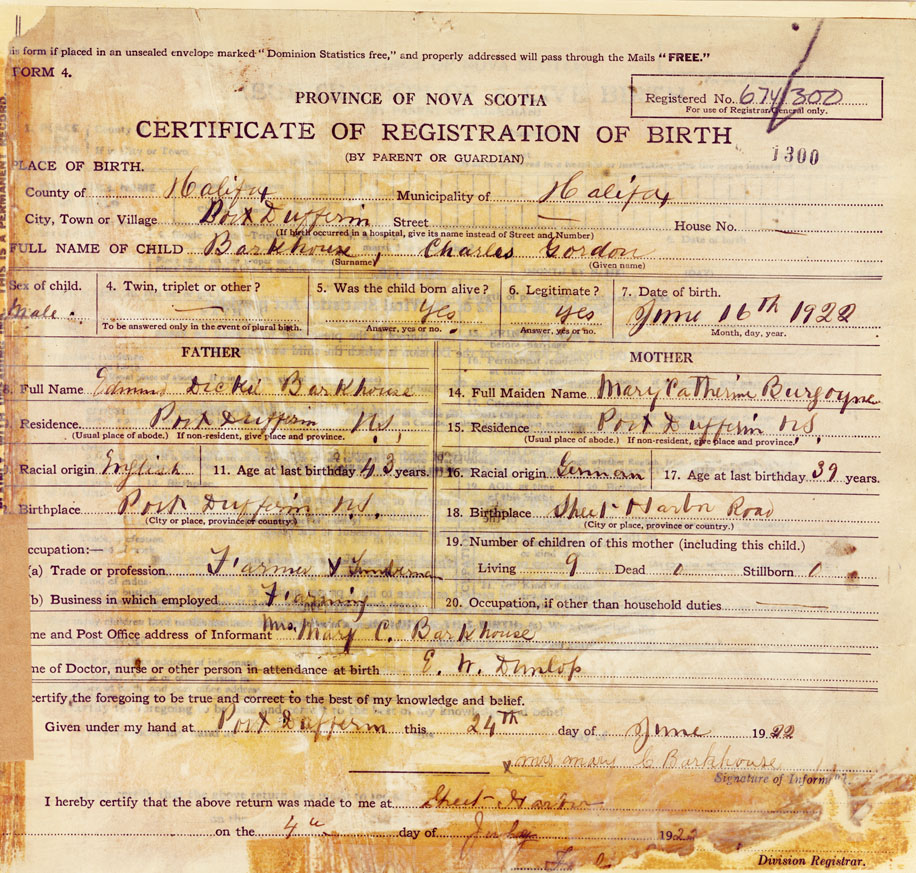 is form if placed in an unsealed envelope marked "Dominion Statistics free," and properly addressed will pass through the Mails "FREE."
FORM 4.
PROVINCE OF NOVA SCOTIA
Registered No. 674/300
For use of Registrar General only.
CERTIFICATE OF REGISTRATION OF BIRTH
(BY PARENT OR GUARDIAN)
1300
PLACE OF BIRTH.
County of Halifax Municipality of Halifax
City, Town or Village Port Dufferin Street — House No. —
(If birth occurred in a hospital, give its name instead of Street and Number)
FULL NAME OF CHILD Barkhouse, Charles Gordon
(Surname) (Given name)
Sex of child. 4. Twin, triplet or other? 5. Was the child born alive? 6. Legitimate? 7. Date of birth.
Male. — Yes Yes June 16th 1922
To be answered only in the event of plural birth. Answer, yes or no. Answer, yes or no. Month, day, year.
FATHER MOTHER
8. Full Name Edmund Dickie Barkhouse 14. Full Maiden Name Mary Catherine Burgoyne
Residence. Port Dufferin N.S. 15. Residence Port Dufferin N.S.
(Usual place of abode.) If non-resident, give place and province. (Usual place of abode.) If non-resident, give place and province.
Racial origin English 11. Age at last birthday 43 years. 16. Racial origin German 17. Age at last birthday 39 years.
Birthplace Port Dufferin N.S. 18. Birthplace Sheet Harbor Road
(City or place, province or country.) (City or place, province or country.)
ccupation:— 19. Number of children of this mother (including this child.)
(a) Trade or profession Farmer & Lumberman Living 9 Dead 0 Stillborn 0
(b) Business in which employed Farming 20. Occupation, if other than household duties —
me and Post Office address of Informant Mrs. Mary C. Barkhouse
me of Doctor, nurse or other person in attendance at birth E. W. Dunlop
certify the foregoing to be true and correct to the best of my knowledge and belief.
Given under my hand at Port Dufferin this 24th day of June 1922
x Mrs Mary C Barkhouse
Signature of Inform
I hereby certify that the above return was made to me at Sheet Harbor
on the 4th day of July 1922
Division Registrar.